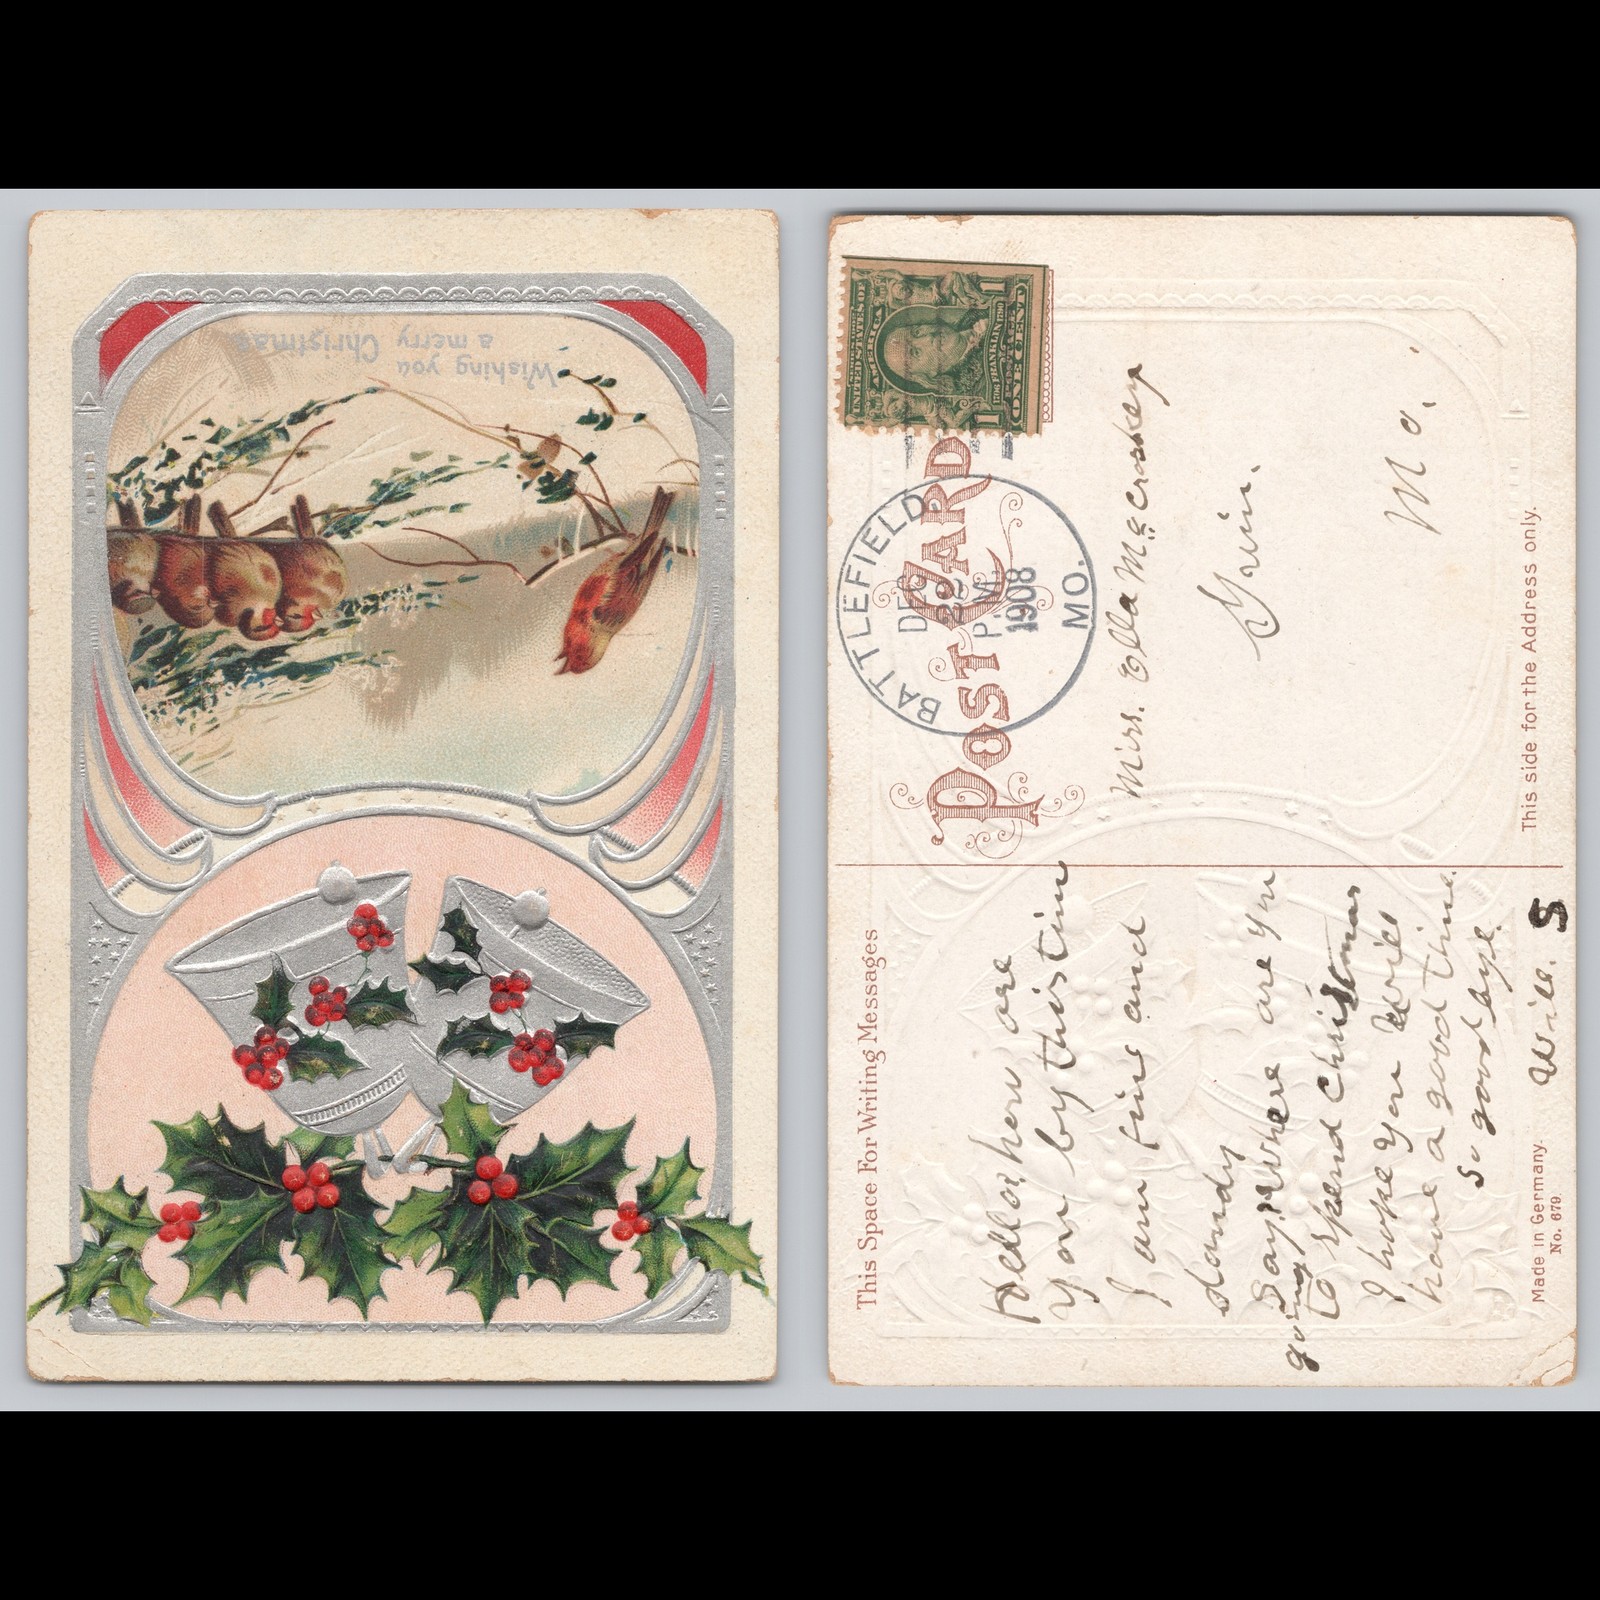 Wishing you
a merry Christmas
POST CARD
BATTLEFIELD.
DEC
22
P.M.
1908
MO.
UNITED STATES OF
AMERICA
1706 FRANKLIN 1790
POSTAGE
1 ONE CENT 1
Miss. Ella McCroskey
Mo.
This side for the Address only.
This Space For Writing Messages
Hello how are
you by this tim
I am fine and
dandy
Say. Where are you
going
to spend Christmas
I hope you will
have a good time.
So good bye.
Will. S
Made in Germany.
No. 679.